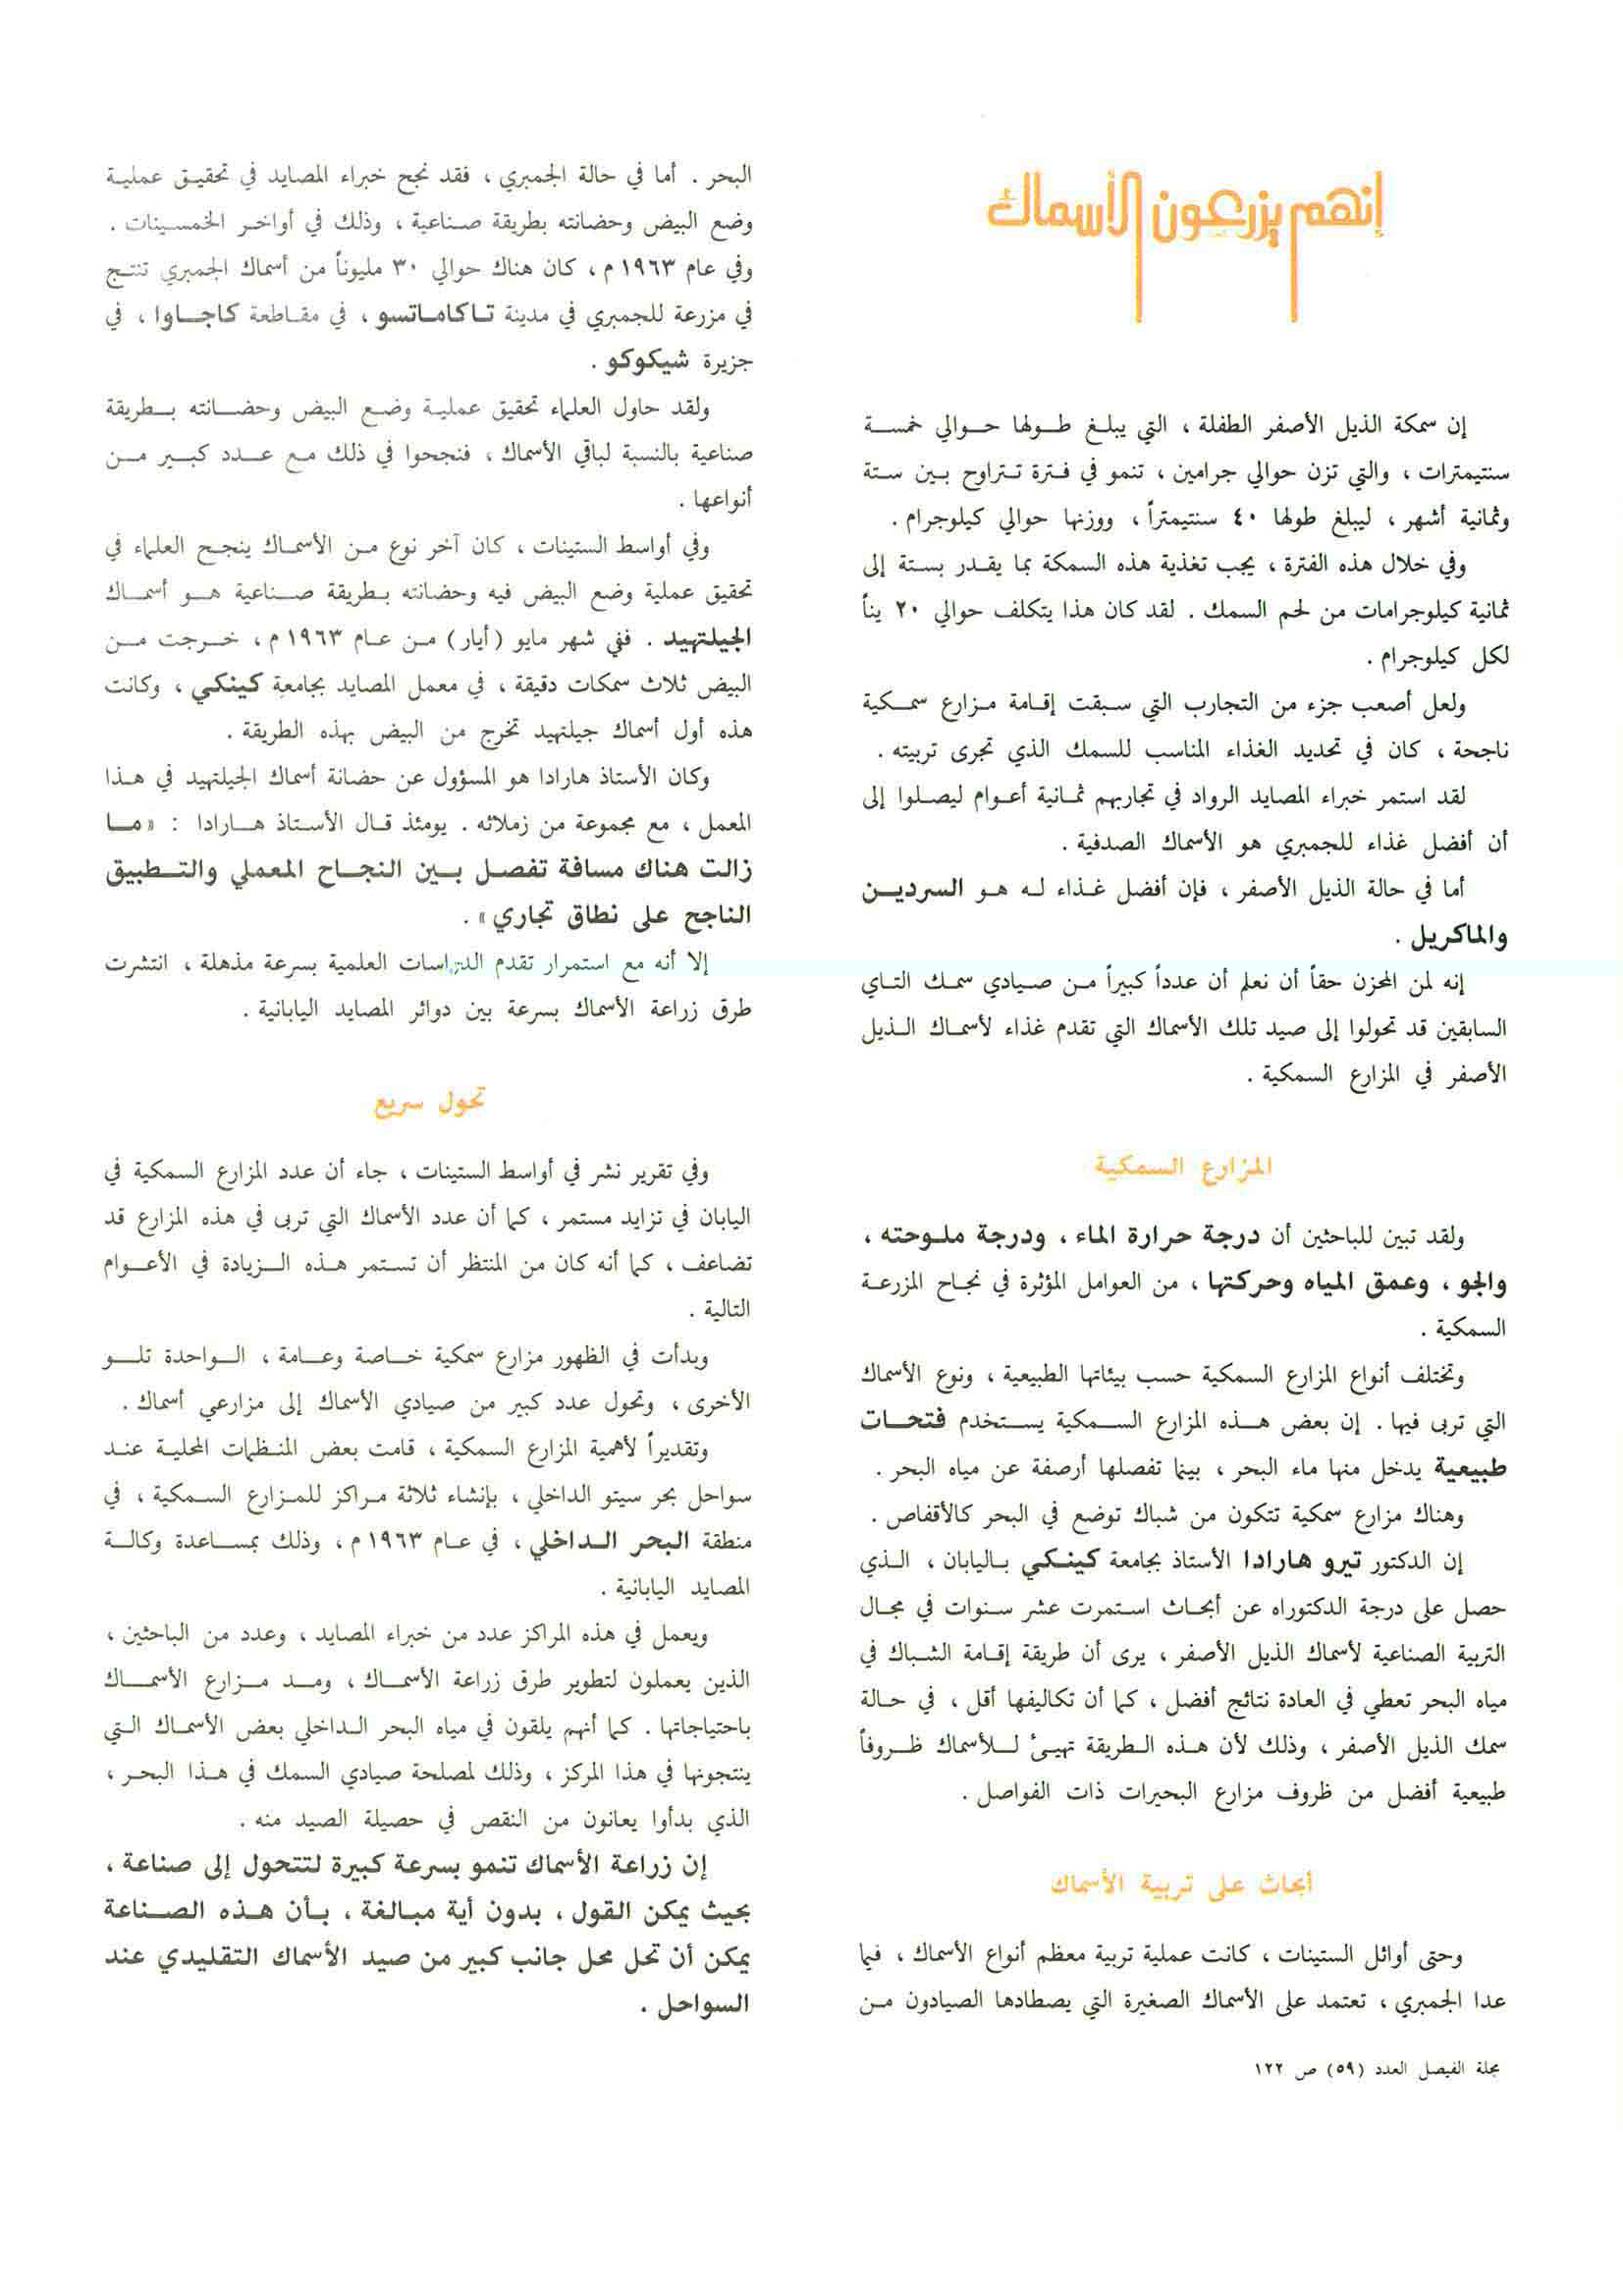 إنهم يزرعون الأسماك
إن سمكة الذيل الأصفر الطفلة ، التي يبلغ طولها حوالي خمسة
سنتيمترات ، والتي تزن حوالي جرامين ، تنمو في فترة تتراوح بين ستة
وثمانية أشهر ، ليبلغ طولها ٤٠ سنتيمتراً ، ووزنها حوالي كيلوجرام .
وفي خلال هذه الفترة ، يجب تغذية هذه السمكة بما يقدر بستة إلى
ثمانية كيلوجرامات من لحم السمك . لقد كان هذا يتكلف حوالي ٢٠ يناً
لكل كيلوجرام .
ولعل أصعب جزء من التجارب التي سبقت إقامة مزارع سمكية
ناجحة ، كان في تحديد الغذاء المناسب للسمك الذي تجرى تربيته .
لقد استمر خبراء المصايد الرواد في تجاربهم ثمانية أعوام ليصلوا إلى
أن أفضل غذاء للجمبري هو الأسماك الصدفية .
أما في حالة الذيل الأصفر ، فإن أفضل غذاء له هو السردين
والماكريل .
إنه لمن المحزن حقاً أن نعلم أن عدداً كبيراً من صيادي سمك التاي
السابقين قد تحولوا إلى صيد تلك الأسماك التي تقدم غذاء لأسماك الذيل
الأصفر في المزارع السمكية .
المزارع السمكية
ولقد تبين للباحثين أن درجة حرارة الماء ، ودرجة ملوحته ،
والجو ، وعمق المياه وحركتها ، من العوامل المؤثرة في نجاح المزرعة
السمكية .
وتختلف أنواع المزارع السمكية حسب بيئاتها الطبيعية ، ونوع الأسماك
التي تربى فيها . إن بعض هذه المزارع السمكية يستخدم فتحات
طبيعية يدخل منها ماء البحر ، بينما تفصلها أرصفة عن مياه البحر .
وهناك مزارع سمكية تتكون من شباك توضع في البحر كالأقفاص .
إن الدكتور تيرو هارادا الأستاذ بجامعة كينكي باليابان ، الذي
حصل على درجة الدكتوراه عن أبحاث استمرت عشر سنوات في مجال
التربية الصناعية لأسماك الذيل الأصفر ، يرى أن طريقة إقامة الشباك في
مياه البحر تعطي في العادة نتائج أفضل ، كما أن تكاليفها أقل ، في حالة
سمك الذيل الأصفر ، وذلك لأن هذه الطريقة تهيئ للأسماك ظروفاً
طبيعية أفضل من ظروف مزارع البحيرات ذات الفواصل .
أبحاث على تربية الأسماك
وحتى أوائل الستينات ، كانت عملية تربية معظم أنواع الأسماك ، فيما
عدا الجمبري ، تعتمد على الأسماك الصغيرة التي يصطادها الصيادون من
البحر . أما في حالة الجمبري ، فقد نجح خبراء المصايد في تحقيق عملية
وضع البيض وحضانته بطريقة صناعية ، وذلك في أواخر الخمسينات .
وفي عام ١٩٦٣ م ، كان هناك حوالي ٣٠ مليوناً من أسماك الجمبري تنتج
في مزرعة للجمبري في مدينة تاكاماتسو ، في مقاطعة كاجاوا ، في
جزيرة شيكوكو .
ولقد حاول العلماء تحقيق عملية وضع البيض وحضانته بطريقة
صناعية بالنسبة لباقي الأسماك ، فنجحوا في ذلك مع عدد كبير من
أنواعها .
وفي أواسط الستينات ، كان آخر نوع من الأسماك ينجح العلماء في
تحقيق عملية وضع البيض فيه وحضانته بطريقة صناعية هو أسماك
الجيلتهيد . ففي شهر مايو (أيار) من عام ١٩٦٣ م ، خرجت من
البيض ثلاث سمكات دقيقة ، في معمل المصايد بجامعة كينكي ، وكانت
هذه أول أسماك جيلتهيد تخرج من البيض بهذه الطريقة .
وكان الأستاذ هارادا هو المسؤول عن حضانة أسماك الجيلتهيد في هذا
المعمل ، مع مجموعة من زملائه . يومئذ قال الأستاذ هارادا : «ما
زالت هناك مسافة تفصل بين النجاح المعملي والتطبيق
الناجح على نطاق تجاري» .
إلا أنه مع استمرار تقدم الدراسات العلمية بسرعة مذهلة ، انتشرت
طرق زراعة الأسماك بسرعة بين دوائر المصايد اليابانية .
تحول سريع
وفي تقرير نشر في أواسط الستينات ، جاء أن عدد المزارع السمكية في
اليابان في تزايد مستمر ، كما أن عدد الأسماك التي تربى في هذه المزارع قد
تضاعف ، كما أنه كان من المنتظر أن تستمر هذه الزيادة في الأعوام
التالية .
وبدأت في الظهور مزارع سمكية خاصة وعامة ، الواحدة تلو
الأخرى ، وتحول عدد كبير من صيادي الأسماك إلى مزارعي أسماك .
وتقديراً لأهمية المزارع السمكية ، قامت بعض المنظمات المحلية عند
سواحل بحر سيتو الداخلي ، بإنشاء ثلاثة مراكز للمزارع السمكية ، في
منطقة البحر الداخلي ، في عام ١٩٦٣ م ، وذلك بمساعدة وكالة
المصايد اليابانية .
ويعمل في هذه المراكز عدد من خبراء المصايد ، وعدد من الباحثين ،
الذين يعملون لتطوير طرق زراعة الأسماك ، ومد مزارع الأسماك
باحتياجاتها . كما أنهم يلقون في مياه البحر الداخلي بعض الأسماك التي
ينتجونها في هذا المركز ، وذلك لمصلحة صيادي السمك في هذا البحر ،
الذي بدأوا يعانون من النقص في حصيلة الصيد منه .
إن زراعة الأسماك تنمو بسرعة كبيرة لتتحول إلى صناعة ،
بحيث يمكن القول ، بدون أية مبالغة ، بأن هذه الصناعة
يمكن أن تحل محل جانب كبير من صيد الأسماك التقليدي عند
السواحل .
مجلة الفيصل العدد (٥٩) ص ١٢٢